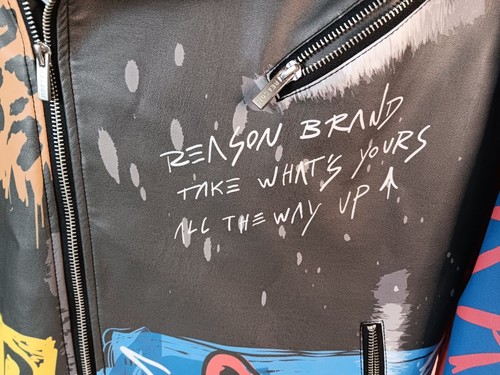 REASON BRAND
TAKE WHAT'S YOURS
ALL THE WAY UP ↑